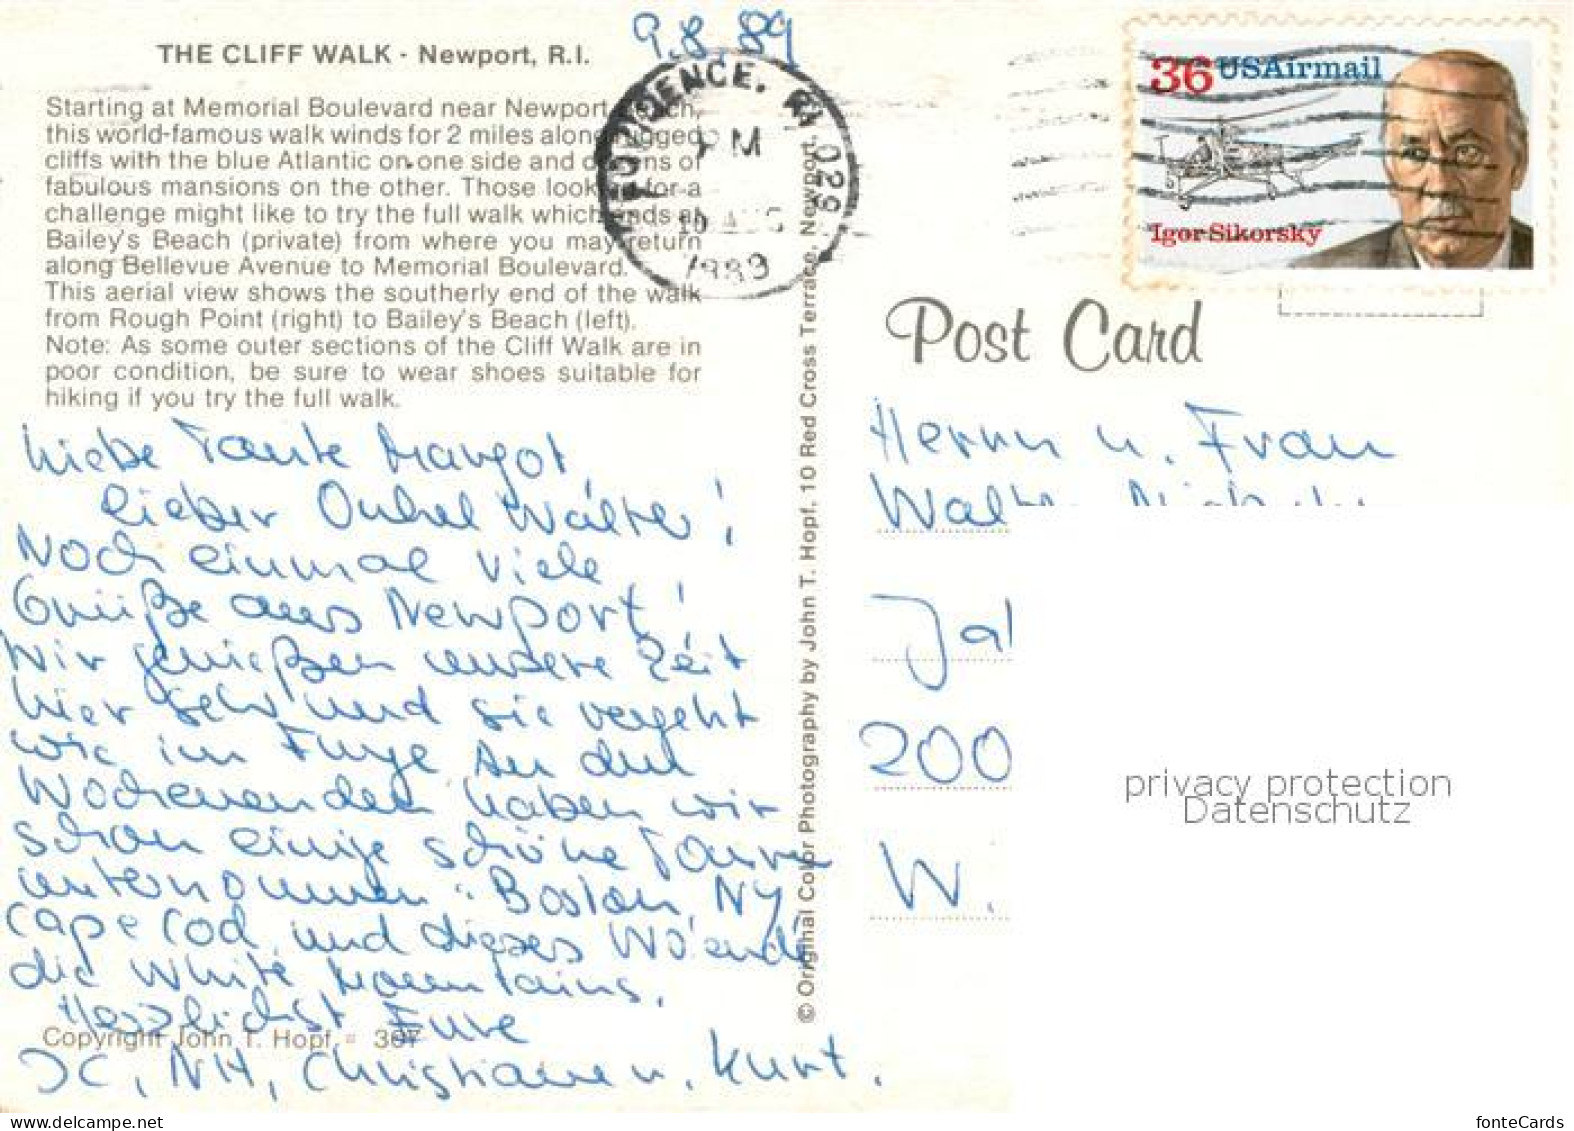 9.8.89
THE CLIFF WALK - Newport, R.I.
Starting at Memorial Boulevard near Newport
this world-famous walk winds for 2 miles along rugged
cliffs with the blue Atlantic on one side and dozens of
fabulous mansions on the other. Those looking for a
challenge might like to try the full walk which ends at
Bailey's Beach (private) from where you may return
along Bellevue Avenue to Memorial Boulevard.
This aerial view shows the southerly end of the walk
from Rough Point (right) to Bailey's Beach (left).
Note: As some outer sections of the Cliff Walk are in
poor condition, be sure to wear shoes suitable for
hiking if you try the full walk.
Liebe Tante Margot,
lieber Onkel Walter!
Noch einmal viele
Grüße aus Newport!
Wir genießen unsere Zeit
hier sehr und sie vergeht
wie im Fluge. An den
Wochenenden haben wir
schon einige schöne Touren
unternommen: Boston, NY,
Cape Cod, und dieses Wo'ende
die White Mountains.
Herzlichst Eure
Copyright John T. Hopf 307
JC, NH, Christiane u. Kurt.
PROVIDENCE, RI 029
PM
10 AUG
1989
© Original Color Photography by John T. Hopf, 10 Red Cross Terrace, Newport,
36 USAirmail
Igor Sikorsky
Post Card
Herrn u. Frau
Jal
200
W.
privacy protection
Datenschutz
fonteCards